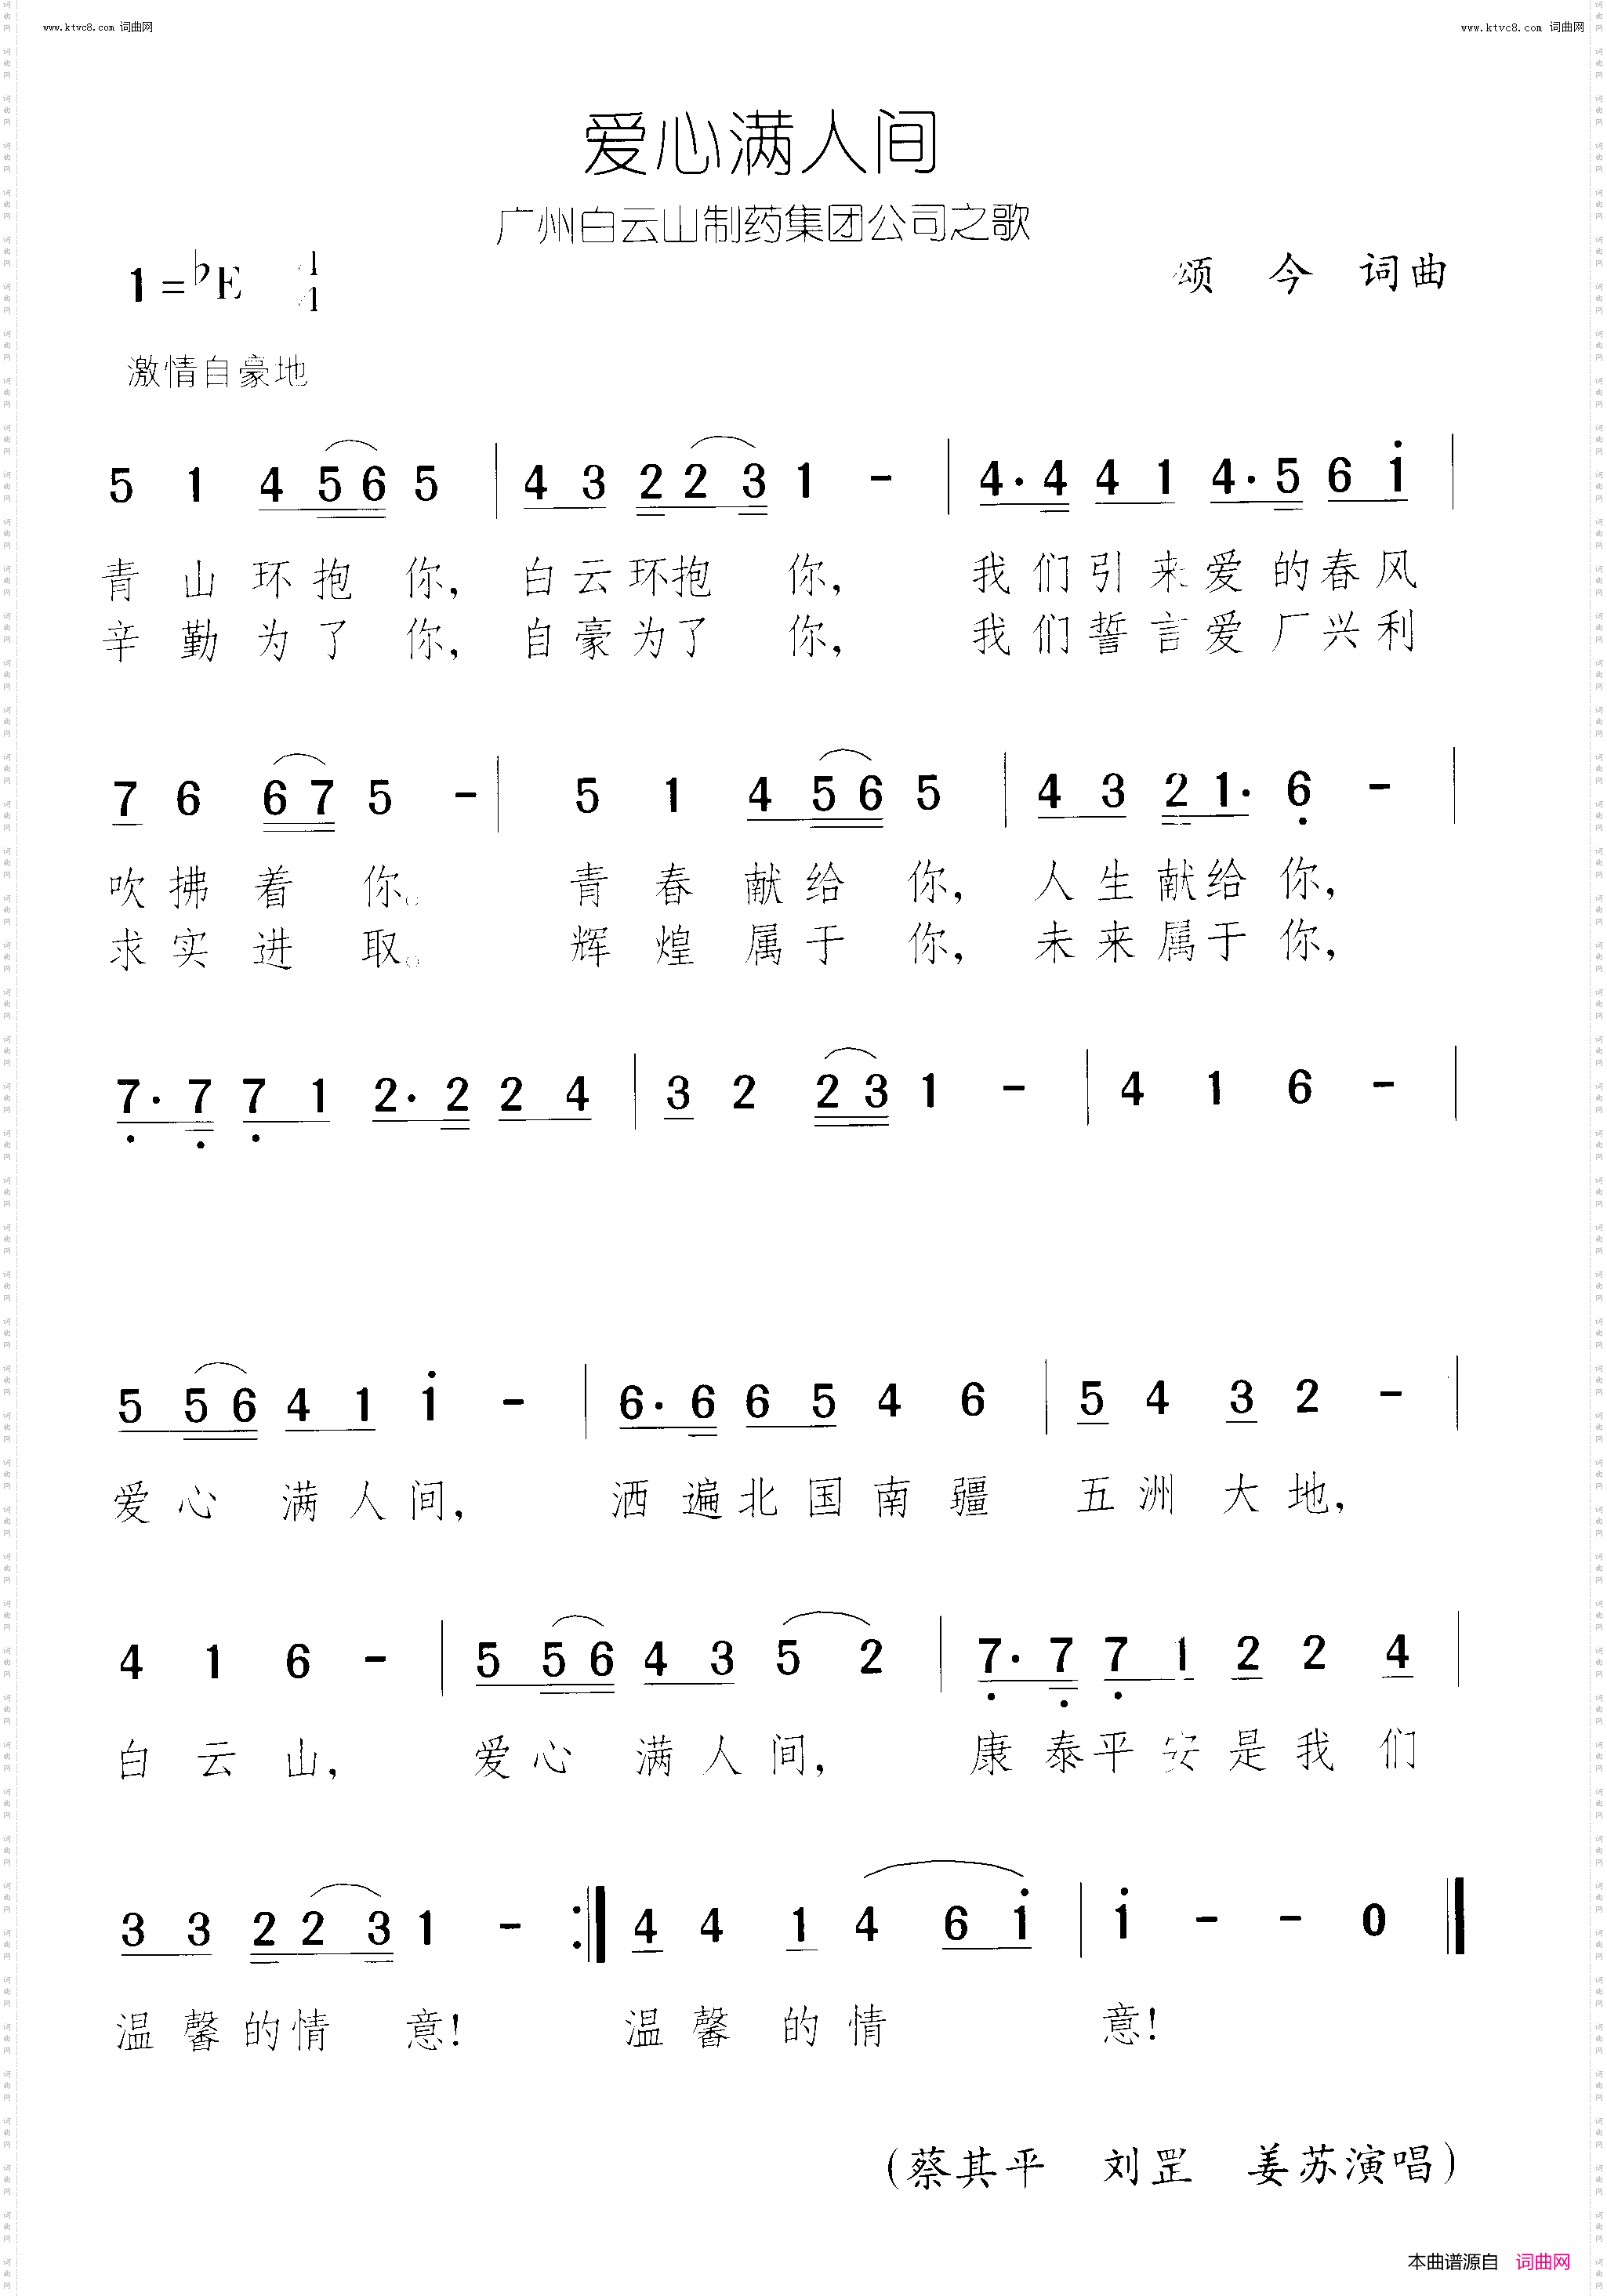 www.ktvc8.com 词曲网 www.ktvc8.com 词曲网
爱心满人间
广州白云山制药集团公司之歌
1=♭E 4/4 颂 今 词曲
激情自豪地
5 1 4 5 6 5 | 4 3 2 2 3 1 - | 4· 4 4 1 4· 5 6 i |
青 山 环 抱 你, 白 云 环 抱 你, 我 们 引 来 爱 的 春 风
辛 勤 为 了 你, 自 豪 为 了 你, 我 们 誓 言 爱 厂 兴 利
7 6 6 7 5 - | 5 1 4 5 6 5 | 4 3 2 1· 6 - |
吹 拂 着 你。 青 春 献 给 你, 人 生 献 给 你,
求 实 进 取。 辉 煌 属 于 你, 未 来 属 于 你,
7· 7 7 1 2· 2 2 4 | 3 2 2 3 1 - | 4 1 6 - |
5 5 6 4 1 i - | 6· 6 6 5 4 6 | 5 4 3 2 - |
爱 心 满 人 间, 洒 遍 北 国 南 疆 五 洲 大 地,
4 1 6 - | 5 5 6 4 3 5 2 | 7· 7 7 1 2 2 4 |
白 云 山, 爱 心 满 人 间, 康 泰 平 安 是 我 们
3 3 2 2 3 1 - :‖ 4 4 1 4 6 i | i - - 0 ‖
温 馨 的 情 意! 温 馨 的 情 意!
(蔡其平 刘罡 姜苏演唱)
本曲谱源自 词曲网